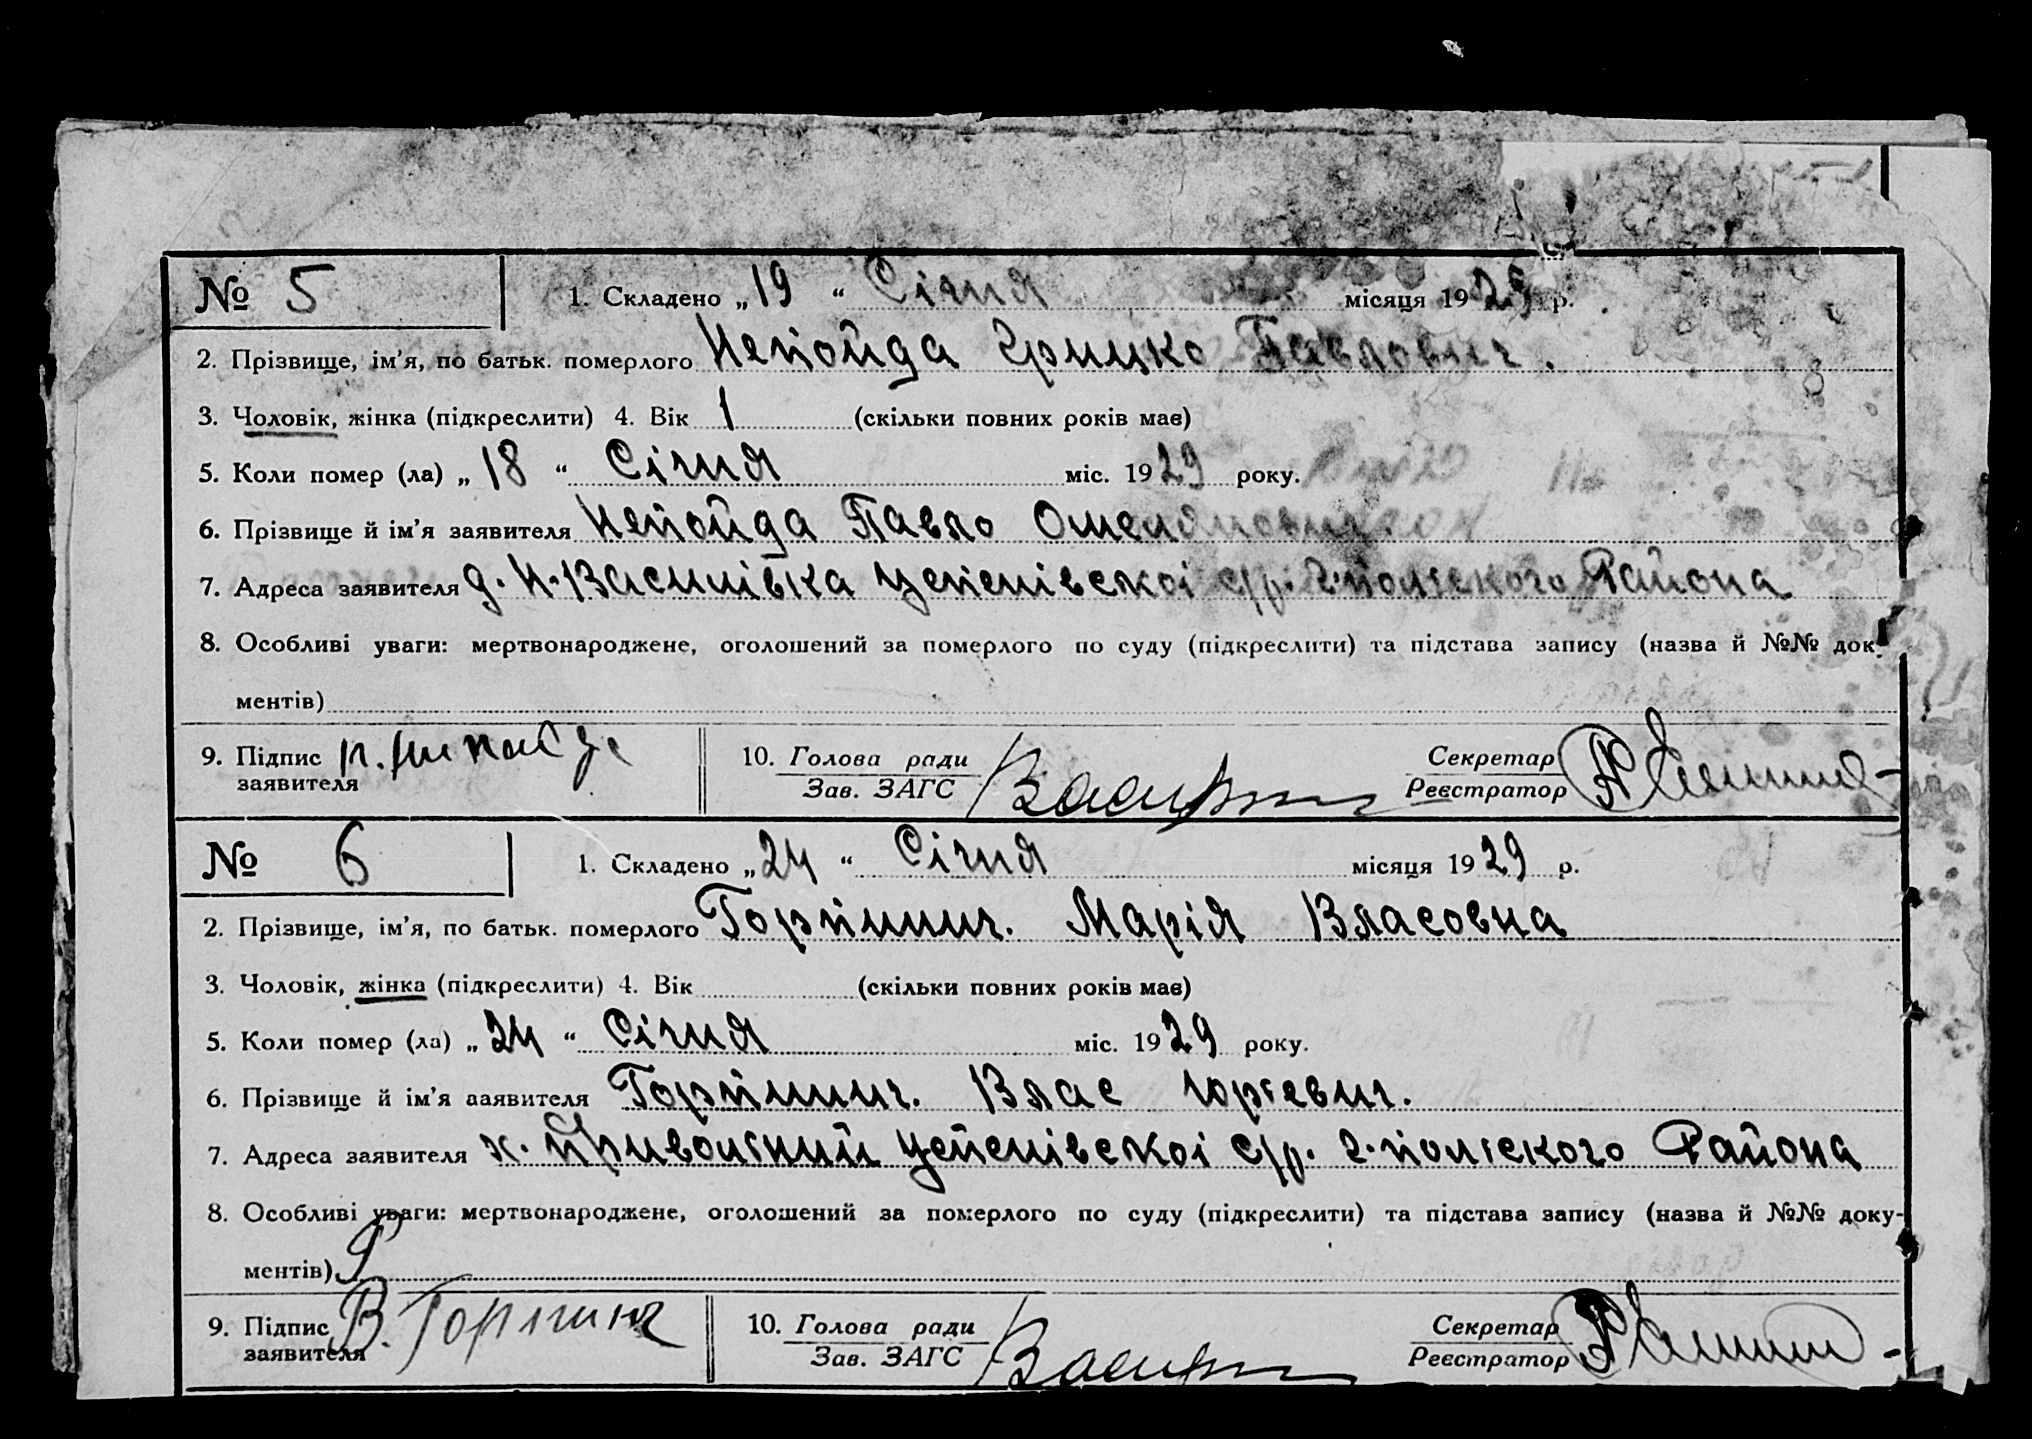 № 5 1. Складено „19“ Січня місяця 1929 р.
2. Прізвище, ім’я, по батьк. померлого Непойда Грицко Павлович.
3. Чоловік, жінка (підкреслити) 4. Вік 1 (скільки повних років має)
5. Коли помер (ла) „18“ Січня міс. 1929 року.
6. Прізвище й ім’я заявителя Непойда Павло Омелянович
7. Адреса заявителя д. Н-Василівка Успенівскої с/р. Г-польского Района
8. Особливі уваги: мертвонароджене, оголошений за померлого по суду (підкреслити) та підстава запису (назва й №№ док
ментів)
9. Підпис 10. Голова ради Секретар
заявителя Зав. ЗАГС Реєстратор
№ 6 1. Складено „24“ Січня місяця 1929 р.
2. Прізвище, ім’я, по батьк. померлого Горпинич. Марія Власовна
3. Чоловік, жінка (підкреслити) 4. Вік (скільки повних років має)
5. Коли помер (ла) „24“ Січня міс. 1929 року.
6. Прізвище й ім’я ааявителя Горпинич. Влас Юрʼевич.
7. Адреса заявителя х. Привольний Успенівскої с/р. Г-польского Района
8. Особливі уваги: мертвонароджене, оголошений за померлого по суду (підкреслити) та підстава запису (назва й №№ доку-
ментів)
9. Підпис В. Горпинич 10. Голова ради Секретар
заявителя Зав. ЗАГС Реєстратор